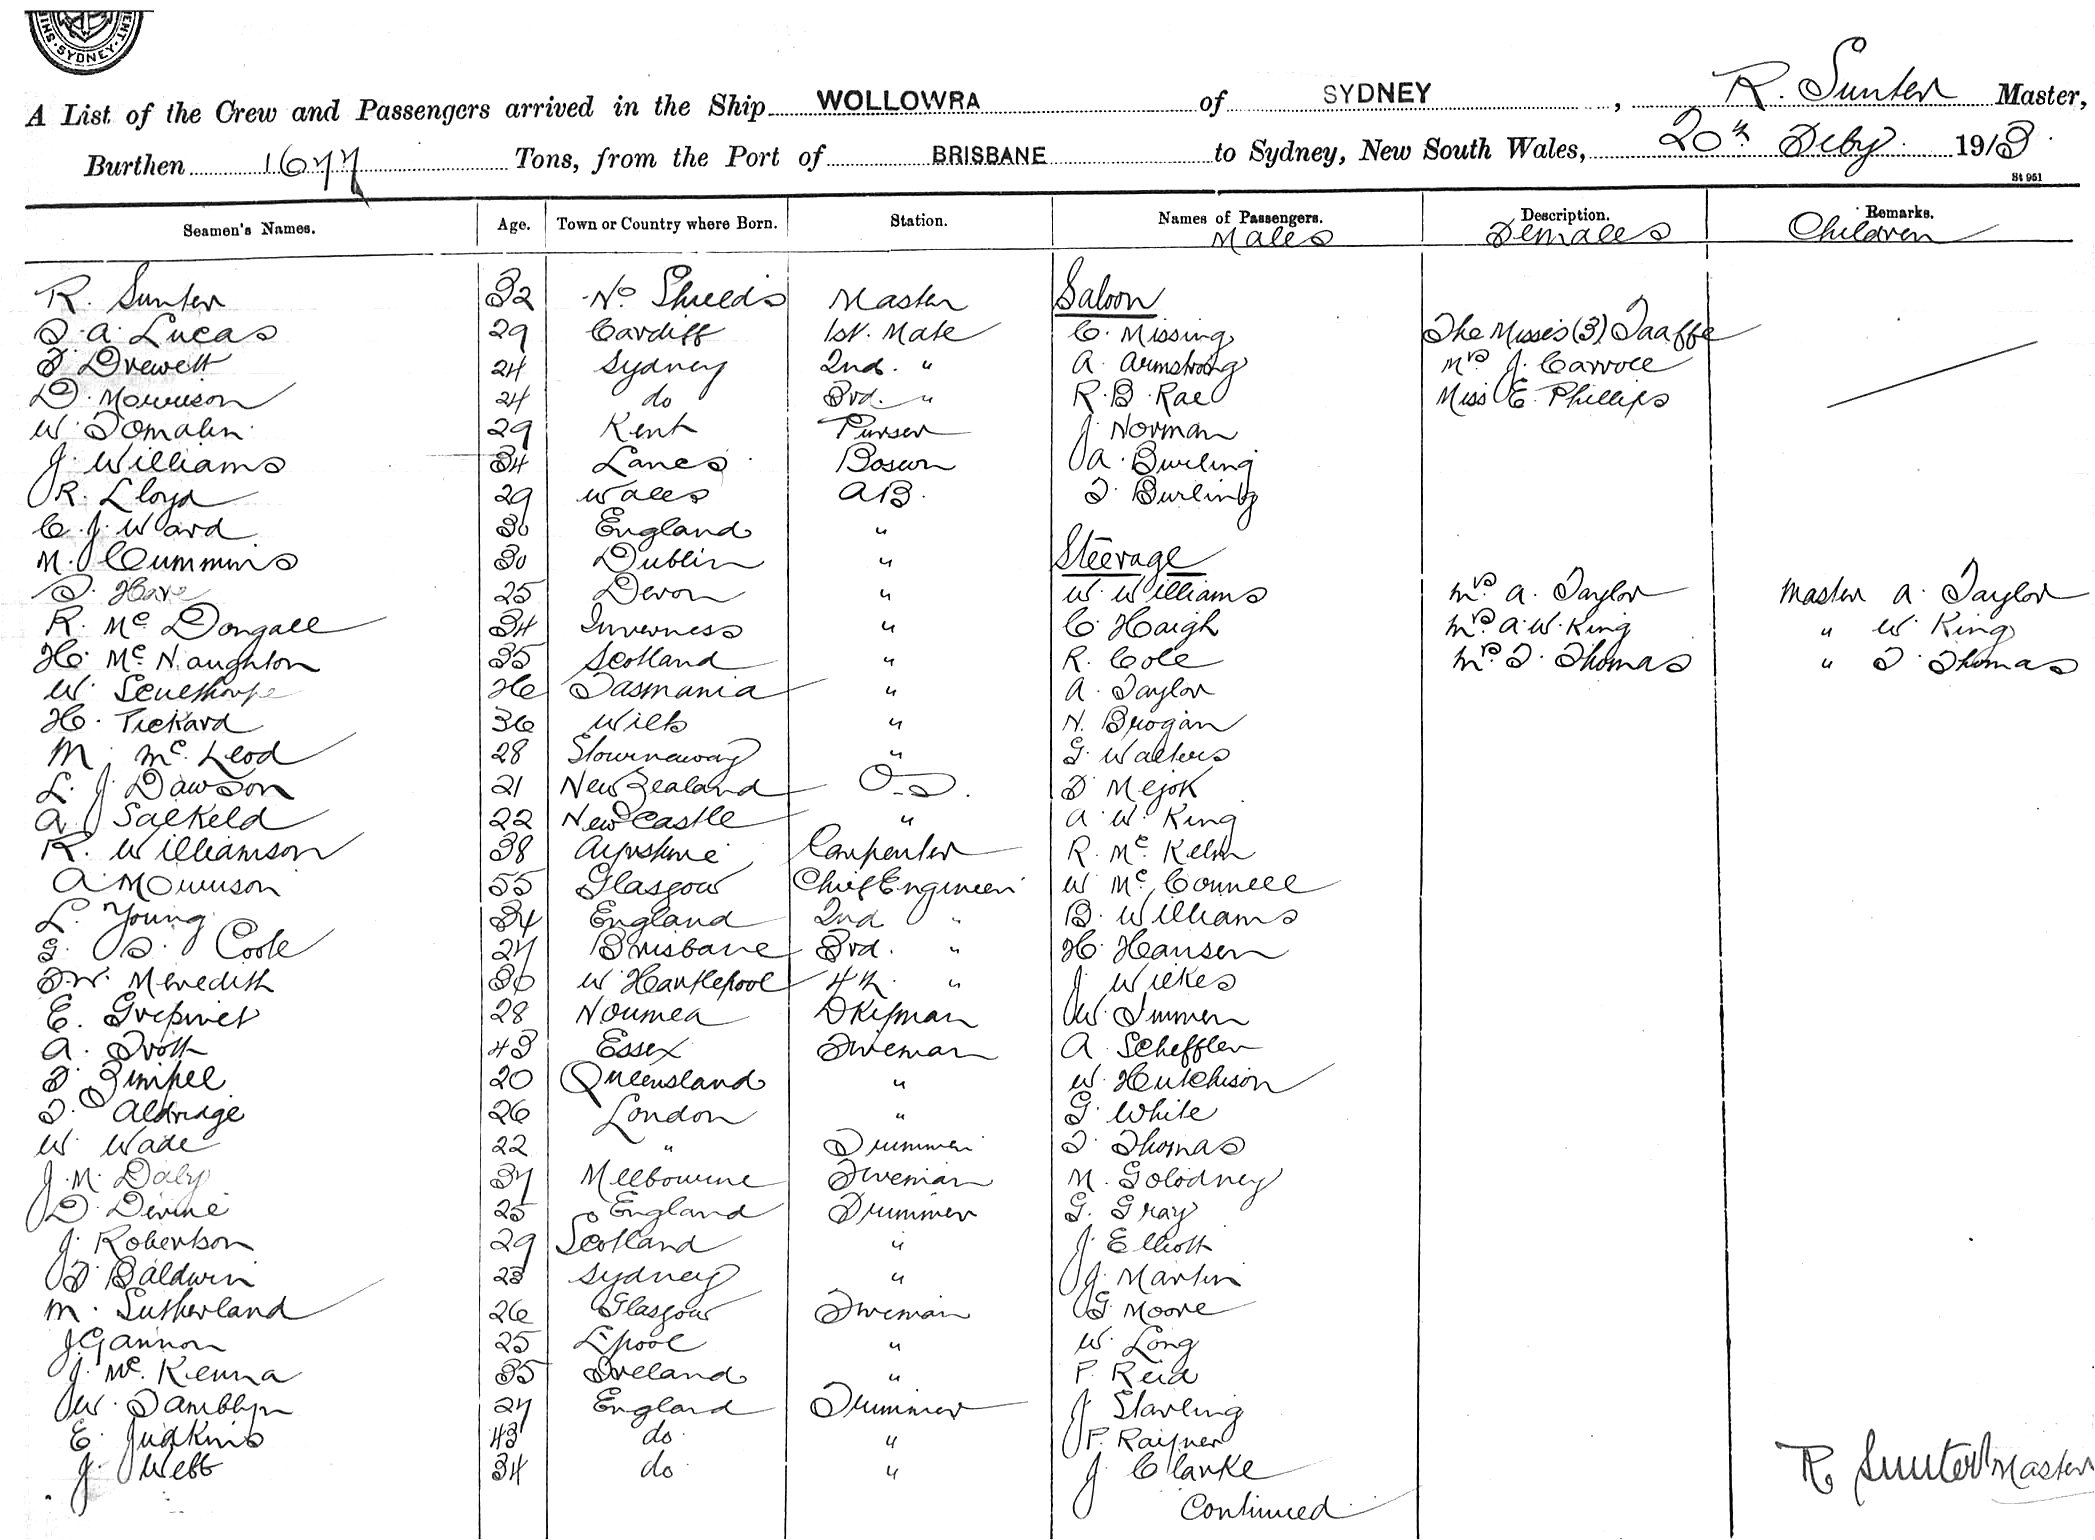 SYDNEY
A List of the Crew and Passengers arrived in the Ship WOLLOWRA of SYDNEY, R. Sunter Master,
Burthen 1677 Tons, from the Port of BRISBANE to Sydney, New South Wales, 20th Feby. 1913.
St 951
Seamen's Names. Age. Town or Country where Born. Station. Names of Passengers. Description. Remarks.
Males Females Children
R. Sunter 32 No. Shields Master Saloon
T. A. Lucas 29 Cardiff 1st. Mate C. Missing The Misses (3) Taaffe
F Drewett 24 Sydney 2nd. " A. Armstrong Mrs J. Carroll
D. Morrison 24 do 3rd. " R. B. Rae Miss E. Phillips
W. Tomalin 29 Kent Purser J Norman
J. Williams 34 Lancs. Bosun A. Burling
R. Lloyd 29 Wales AB. F. Burling
C. J. Ward 30 England "
M. Cummins 30 Dublin " Steerage
S. Hare 25 Devon " W. Williams Mrs. A. Taylor Master A. Taylor
R. Mc Dongall 34 Inverness " C. Haigh Mrs. A. W. King " W. King
H. Mc Naughton 35 Scotland " R. Cole Mrs. T. Thomas " T. Thomas
W. 26 Tasmania " A. Taylor
H. Pickard 36 Wilts " N. Brogan
M. Mc. Leod 28 Stournoway " G. Walters
L. J. Dawson 21 New Zealand O.S. F Mejok
A Salkeld 22 New Castle " A. W. King
R. Williamson 38 Ayrshire Carpenter R. Mc. Kelm
A Morrison 55 Glasgow Chief Engineer W Mc. Connell
L. Young 34 England 2nd " B. Williams
G. S. Cook 27 Brisbane 3rd. " H. Hansen
F. W. Meredith 30 W. Hartlepool 4th. " J Wilkes
E. 28 Noumea Dkyman W. Immen
A. Troth 43 Essex Fireman A Scheffler
F Zimpel 20 Queensland " W. Hutchison
F. Aldridge 26 London " G. White
W Wade 22 " Trimmer T. Thomas
J. M. Daly 37 Melbourne Fireman M. Golodney
D. Devine 25 England Trimmer G. Gray
J. Robertson 29 Scotland " J Elliott
F Baldwin 23 Sydney " J. Martin
M. Sutherland 26 Glasgow Fireman G. Moore
J Gannon 25 L'pool " W. Long
J. Mc. Kenna 35 Ireland " P. Reid
W. Tamblyn 27 England Trimmer J Starling
E. Judkins 43 do. " P. Rayner
J. Webb 34 do " J Clarke
R Sunter Master
Continued